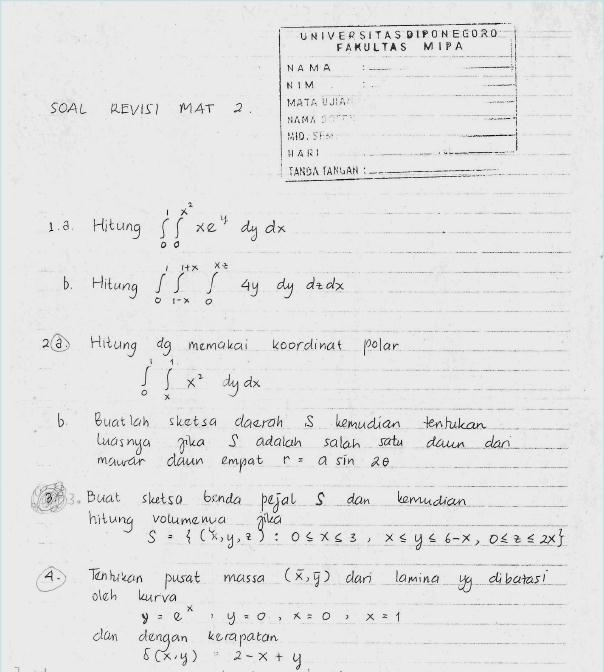 UNIVERSITAS DIPONEGORO
FAKULTAS MIPA
NAMA :
NIM :
MATA UJIAN
NAMA
MID. SEM
HARI
TANDA TANGAN :
SOAL REVISI MAT 2.
1.a. Hitung ∫₀¹ ∫₀^{x²} xe^y dy dx
b. Hitung ∫₀¹ ∫_{1-x}^{1+x} ∫₀^{xz} 4y dy dz dx
2 a. Hitung dg memakai koordinat polar
∫₀¹ ∫ₓ¹ x² dy dx
b. Buatlah sketsa daerah S kemudian tentukan
luasnya jika S adalah salah satu daun dari
mawar daun empat r = a sin 2θ
3. 3. Buat sketsa benda pejal S dan kemudian
hitung volumenya jika
S = { (x,y,z) : 0 ≤ x ≤ 3 , x ≤ y ≤ 6-x, 0 ≤ z ≤ 2x}
4. Tentukan pusat massa (x̄,ȳ) dari lamina yg dibatasi
oleh kurva
y = e^x , y = 0 , x = 0 , x = 1
dan dengan kerapatan
δ(x,y) = 2 - x + y